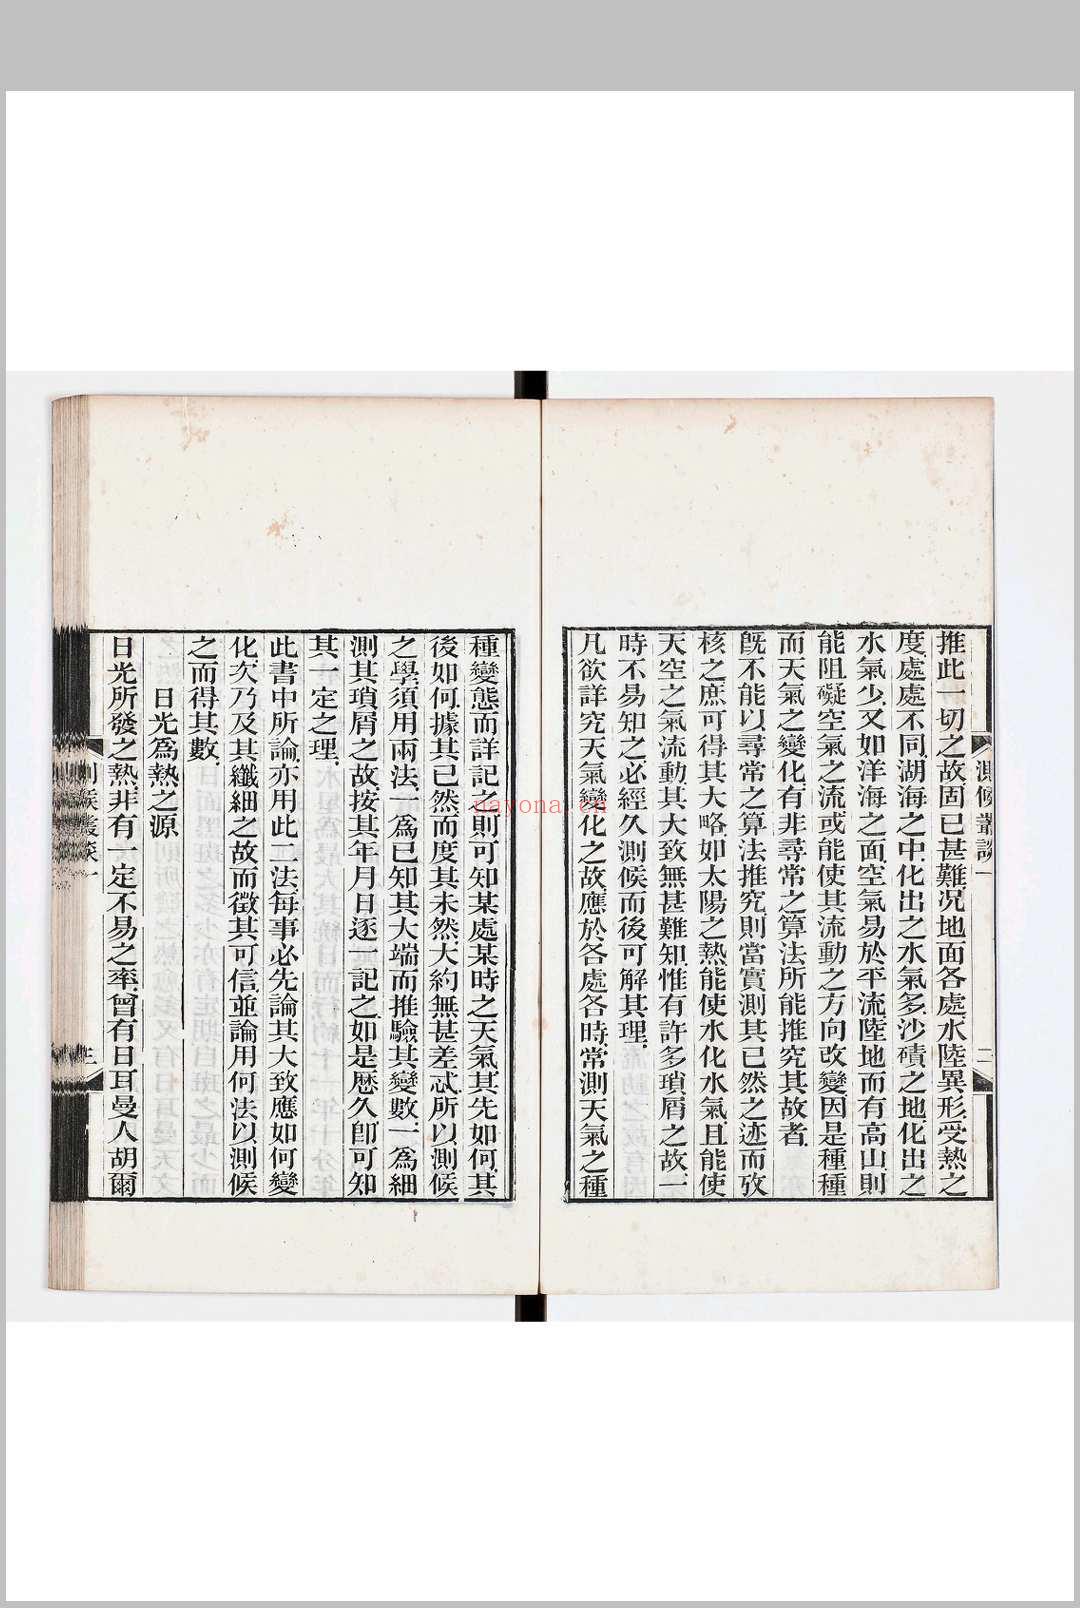 測候叢談一
二
推此一切之故固已甚難況地面各處水陸異形受熱之
度處處不同湖海之中化出之水氣多沙磧之地化出之
水氣少又如洋海之面空氣易於平流陸地而有高山則
能阻礙空氣之流或能使其流動之方向改變因是種種
而天氣之變化有非尋常之算法所能推究其故者
旣不能以尋常之算法推究則當實測其已然之迹而攷
核之庶可得其大略如太陽之熱能使水化水氣且能使
天空之氣流動其大致無甚難知惟有許多瑣屑之故一
時不易知之必經久測候而後可解其理
凡欲詳究天氣變化之故應於各處各時常測天氣之種
種變態而詳記之則可知某處某時之天氣其先如何其
後如何據其已然而度其未然大約無甚差忒所以測候
之學須用兩法一爲已知其大端而推驗其變數一爲細
測其瑣屑之故按其年月日逐一記之如是厯久卽可知
其一定之理
此書中所論亦用此二法每事必先論其大致應如何變
化次乃及其纖細之故而徵其可信並論用何法以測候
之而得其數
日光爲熱之源
日光所發之熱非有一定不易之率曾有日耳曼人胡爾
測候叢談一
三
nayona.cn